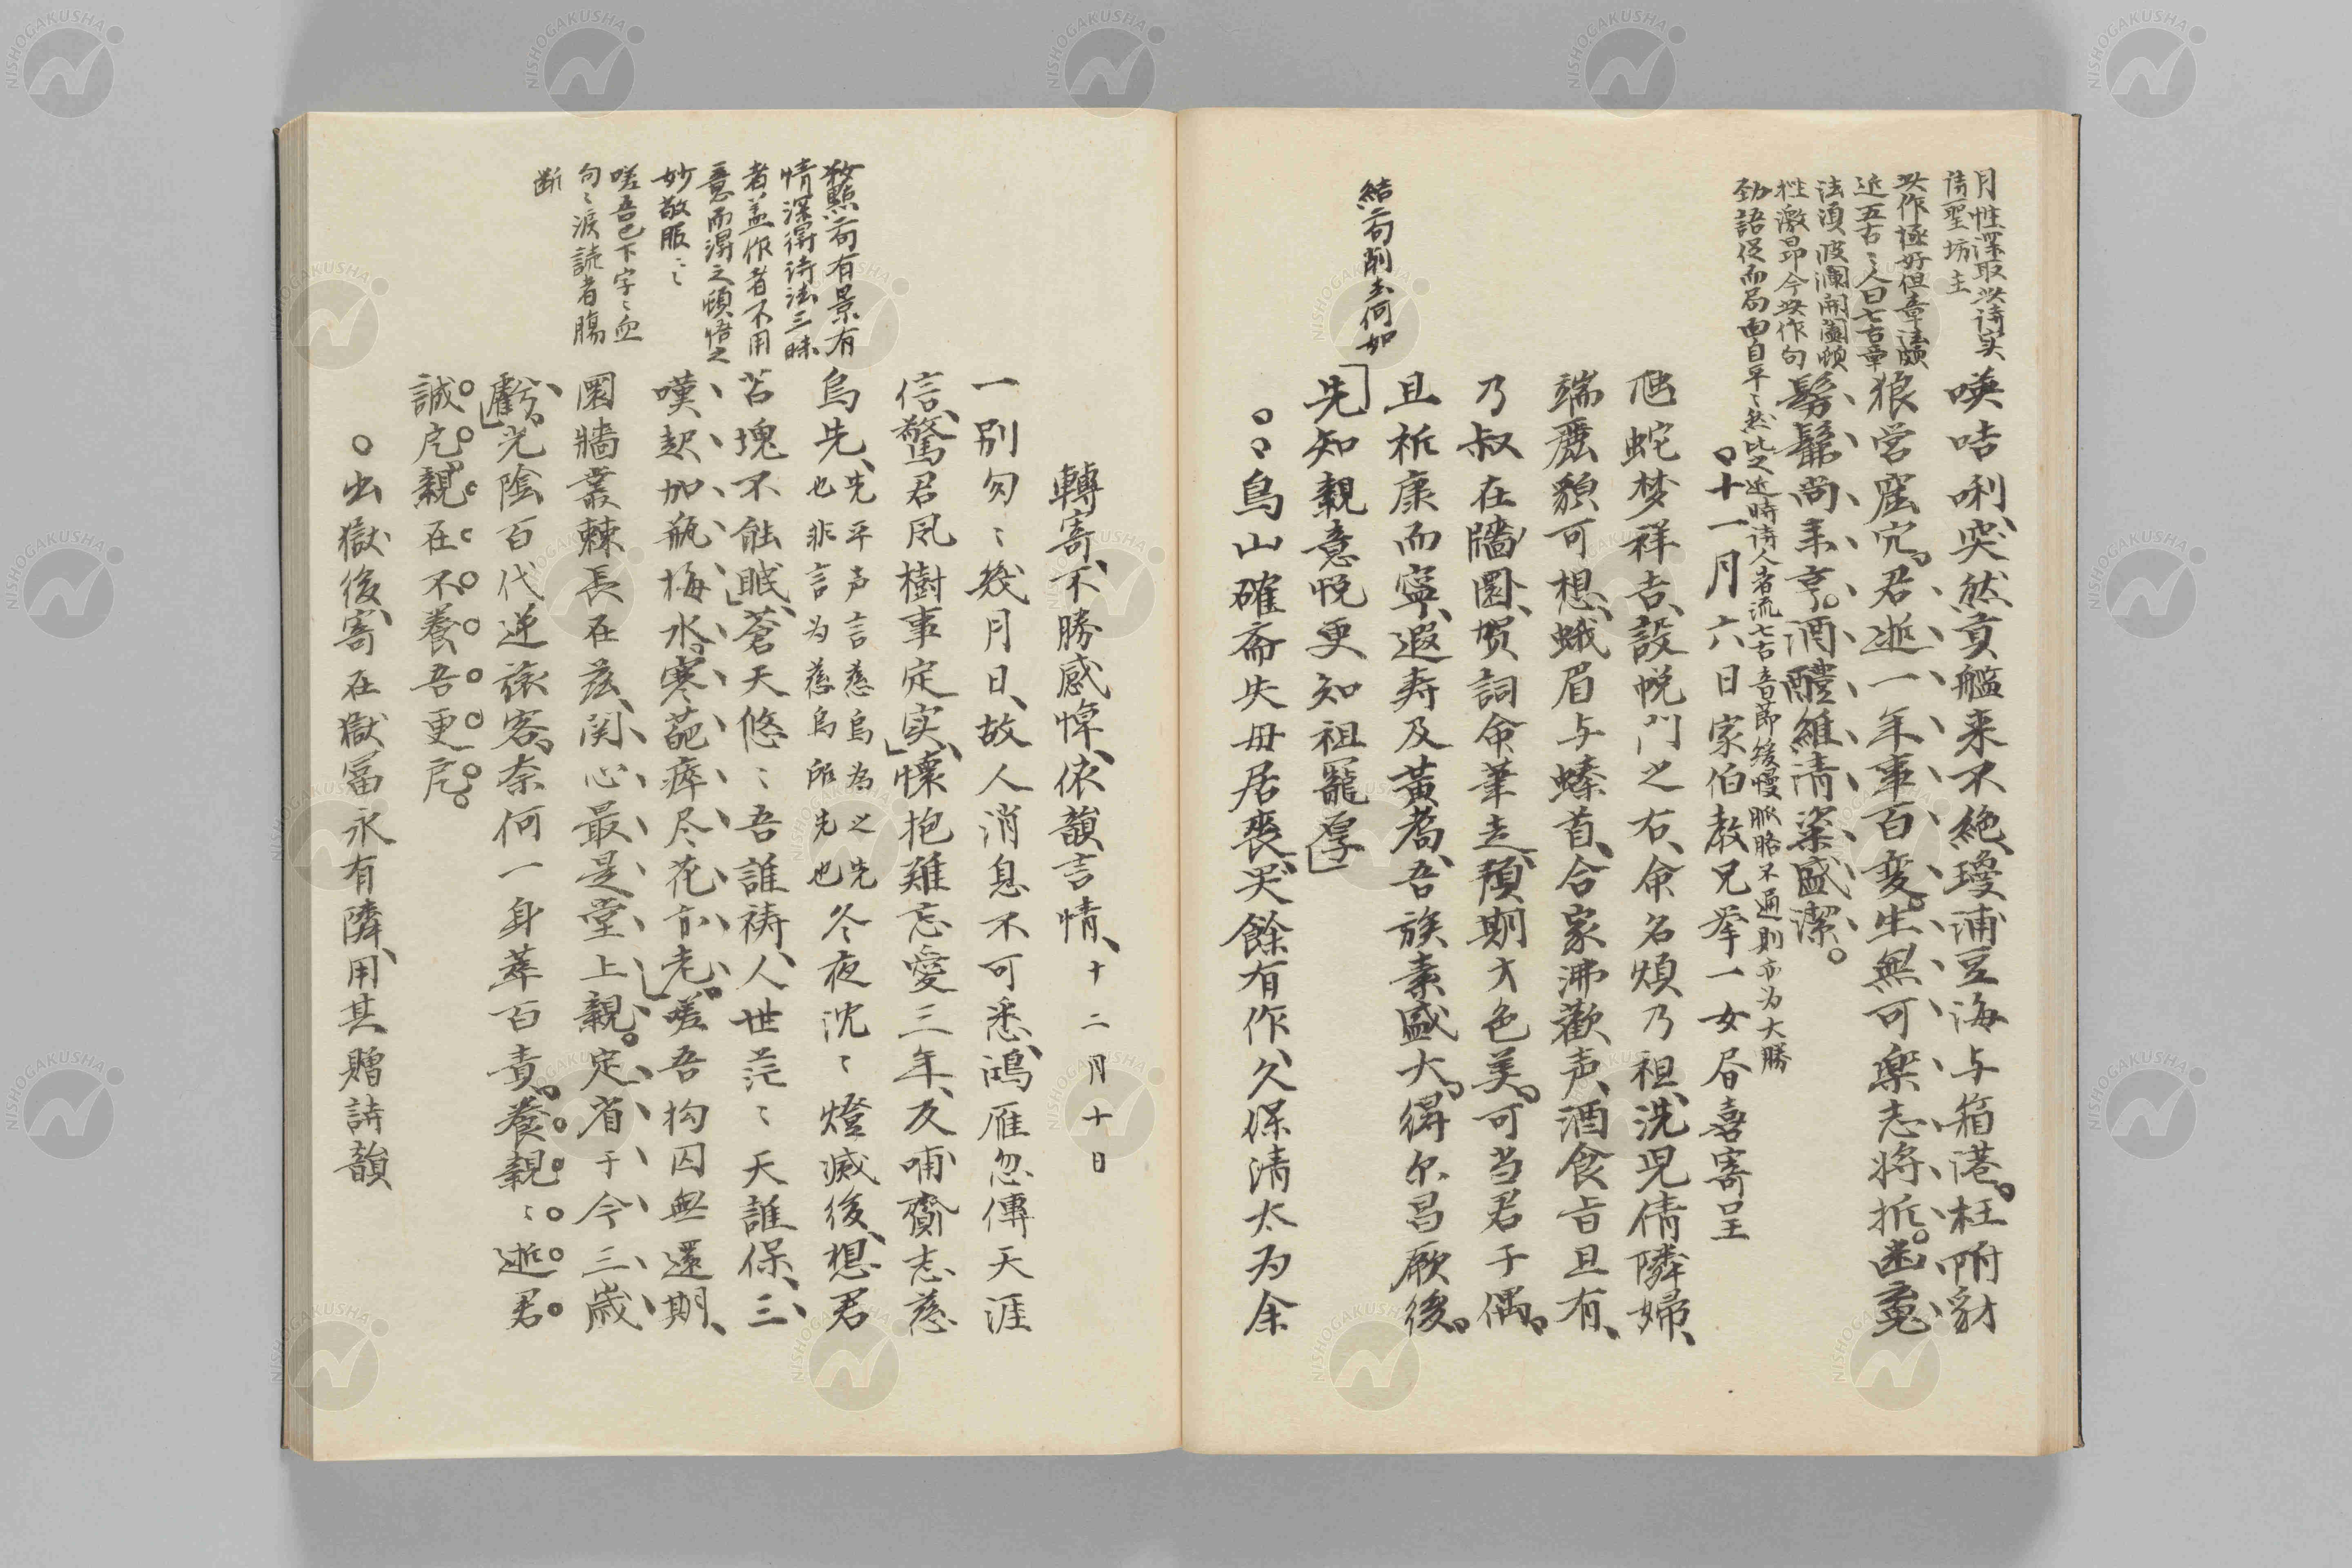 月性深取此詩哭
詩聖坊主
此作極好但章法頗
近五古ミ人曰七古章
法須波瀾開闔頓
挫激昂今此作句
勁語促而局面自平ミ然比之近時詩人者流七古音節緩慢脈胳不通則亦为大勝
喚咭唎突然貢艦来不絶瓊浦豆海与箱港枉附豺
狼営窟穴君逝一年事百変生無可楽志将折幽菟
髣髴尚来享酒醴維清粢盛潔
十一月六日家伯教兄挙一女昏喜寄呈
虺蛇梦祥吉設帨門之右命名煩乃祖洗児倩隣婦
端麗貌可想蛾眉与螓首合家沸歡声酒食旨且有
乃叔在牆圜贺詞命筆走預期才色美可当君子偶
且祈康而寧遐寿及黄耇吾族素盛大得尓昌厥後
結二句削去何如
先知親意悦更知祖寵厚
鳥山確斎失毋居喪哭餘有作久保清太为余
轉寄不勝感悼依韻言情十二月十日
一別匆ミ幾月日故人消息不可悉鴻雁忽傳天涯
信驚君風樹事定実懐抱難忘愛三年反哺齎志慈
烏先先平声言慈烏為之先
也非言为慈烏所先也
冬夜沈ミ燈滅後想君
苫塊不能眠蒼天悠ミ吾誰祷人世茫ミ天誰保三
嘆起加瓶梅水寒葩瘁尽花亦老嗟吾拘囚無還期
圜牆叢棘長在茲関心最是堂上親定省于今三歳
虧光陰百代逆旅客奈何一身萃百責養親ミ逝君
誠戹親在不養吾更戹
敘點二句有景有
情深得詩法三昧
者盖作者不用
意而得之頓悟之
妙敬服ミミ
嗟吾已下字ミ血
句ミ涙読者腸
断
出獄後寄在獄冨永有隣用其贈詩韻